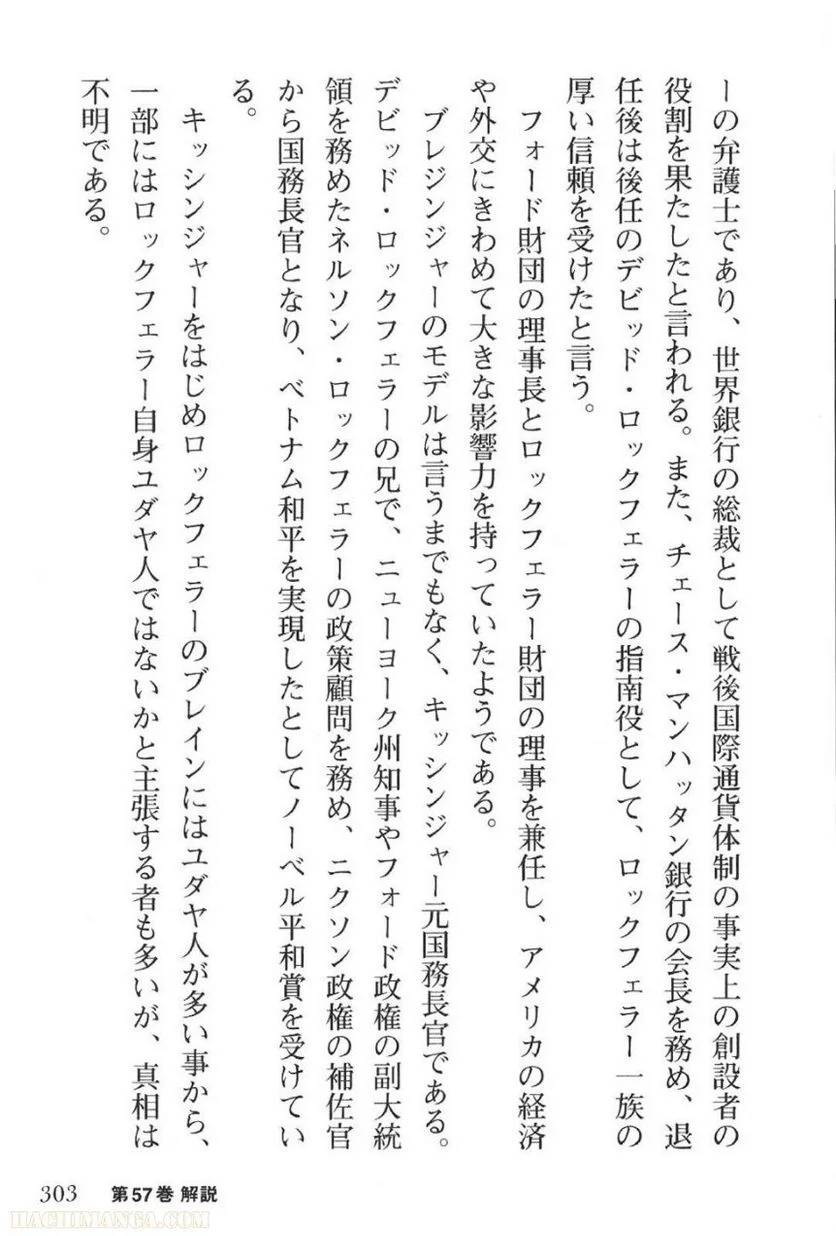 ーの弁護士であり、世界銀行の総裁として戦後国際通貨体制の事実上の創設者の
役割を果たしたと言われる。また、チェース・マンハッタン銀行の会長を務め、退
任後は後任のデビッド・ロックフェラーの指南役として、ロックフェラー一族の
厚い信頼を受けたと言う。
フォード財団の理事長とロックフェラー財団の理事を兼任し、アメリカの経済
や外交にきわめて大きな影響力を持っていたようである。
ブレジンジャーのモデルは言うまでもなく、キッシンジャー元国務長官である。
デビッド・ロックフェラーの兄で、ニューヨーク州知事やフォード政権の副大統
領を務めたネルソン・ロックフェラーの政策顧問を務め、ニクソン政権の補佐官
から国務長官となり、ベトナム和平を実現したとしてノーベル平和賞を受けてい
る。
キッシンジャーをはじめロックフェラーのブレインにはユダヤ人が多い事から、
一部にはロックフェラー自身ユダヤ人ではないかと主張する者も多いが、真相は
不明である。
303 第57巻 解説
HACHIMANGA.COM